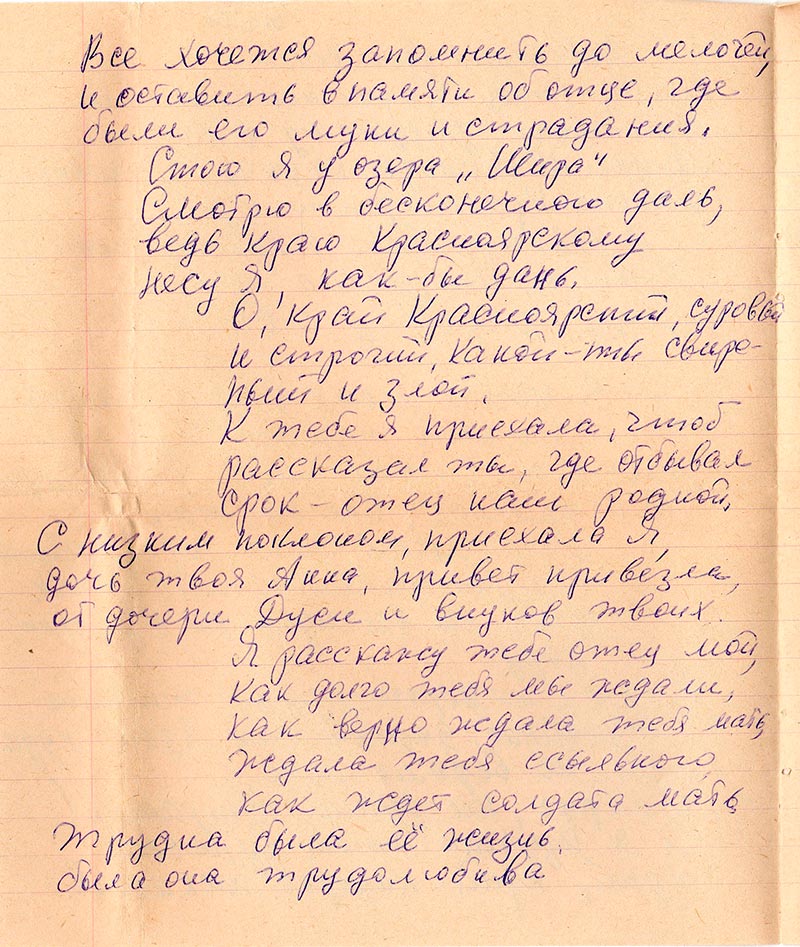 Все хочется запомнить до мелочей,
и оставить в памяти об отце, где
были его муки и страдания.
Стою я у озера „Шира"
Смотрю в бесконечного даль,
ведь краю Красноярскому
несу я, как-бы дань.
О, край Красноярский, суровый
и строгий, какой-ты свире-
пый и злой.
К тебе я приехала, чтоб
рассказал ты, где отбывал
срок - отец наш родной.
С низким поклоном, приехала я,
дочь твоя Анна, привет привезла,
от дочери Дуси и внуков твоих.
Я расскажу тебе отец мой,
как долго тебя мы ждали,
как верно ждала тебя мать,
ждала тебя ссыльного,
как ждет солдата мать
Трудна была её жизнь.
была она трудолюбива